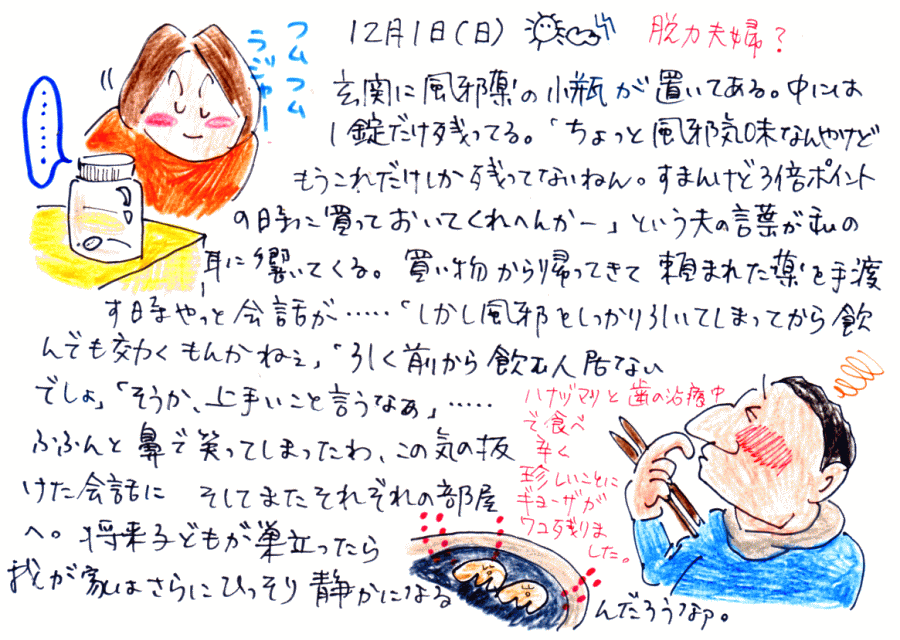 フムフム
ラジャー
………
12月1日(日)
脱力夫婦?
玄関に風邪薬の小瓶が置いてある。中には
1錠だけ残ってる。「ちょっと風邪気味なんやけど
もうこれだけしか残ってないねん。すまんけど3倍ポイント
の日時に買っておいてくれへんかー」という夫の言葉が私の
耳に響いてくる。買い物から帰ってきて頼まれた薬を手渡
す時やっと会話が……「しかし風邪をしっかり引いてしまってから飲
んでも効くもんかねぇ」「引く前から飲む人居ない
でしょ」「そうか、上手いこと言うなぁ」……
ふふんと鼻で笑ってしまったわ、この気の抜
けた会話に そしてまたそれぞれの部屋
へ。将来子どもが巣立ったら
我が家はさらにひっそり静かになる
んだろうなァ。
ハナヅマリと歯の治療中
で食べ
辛く
珍しいことに
ギョーザが
2コ残りま
した。